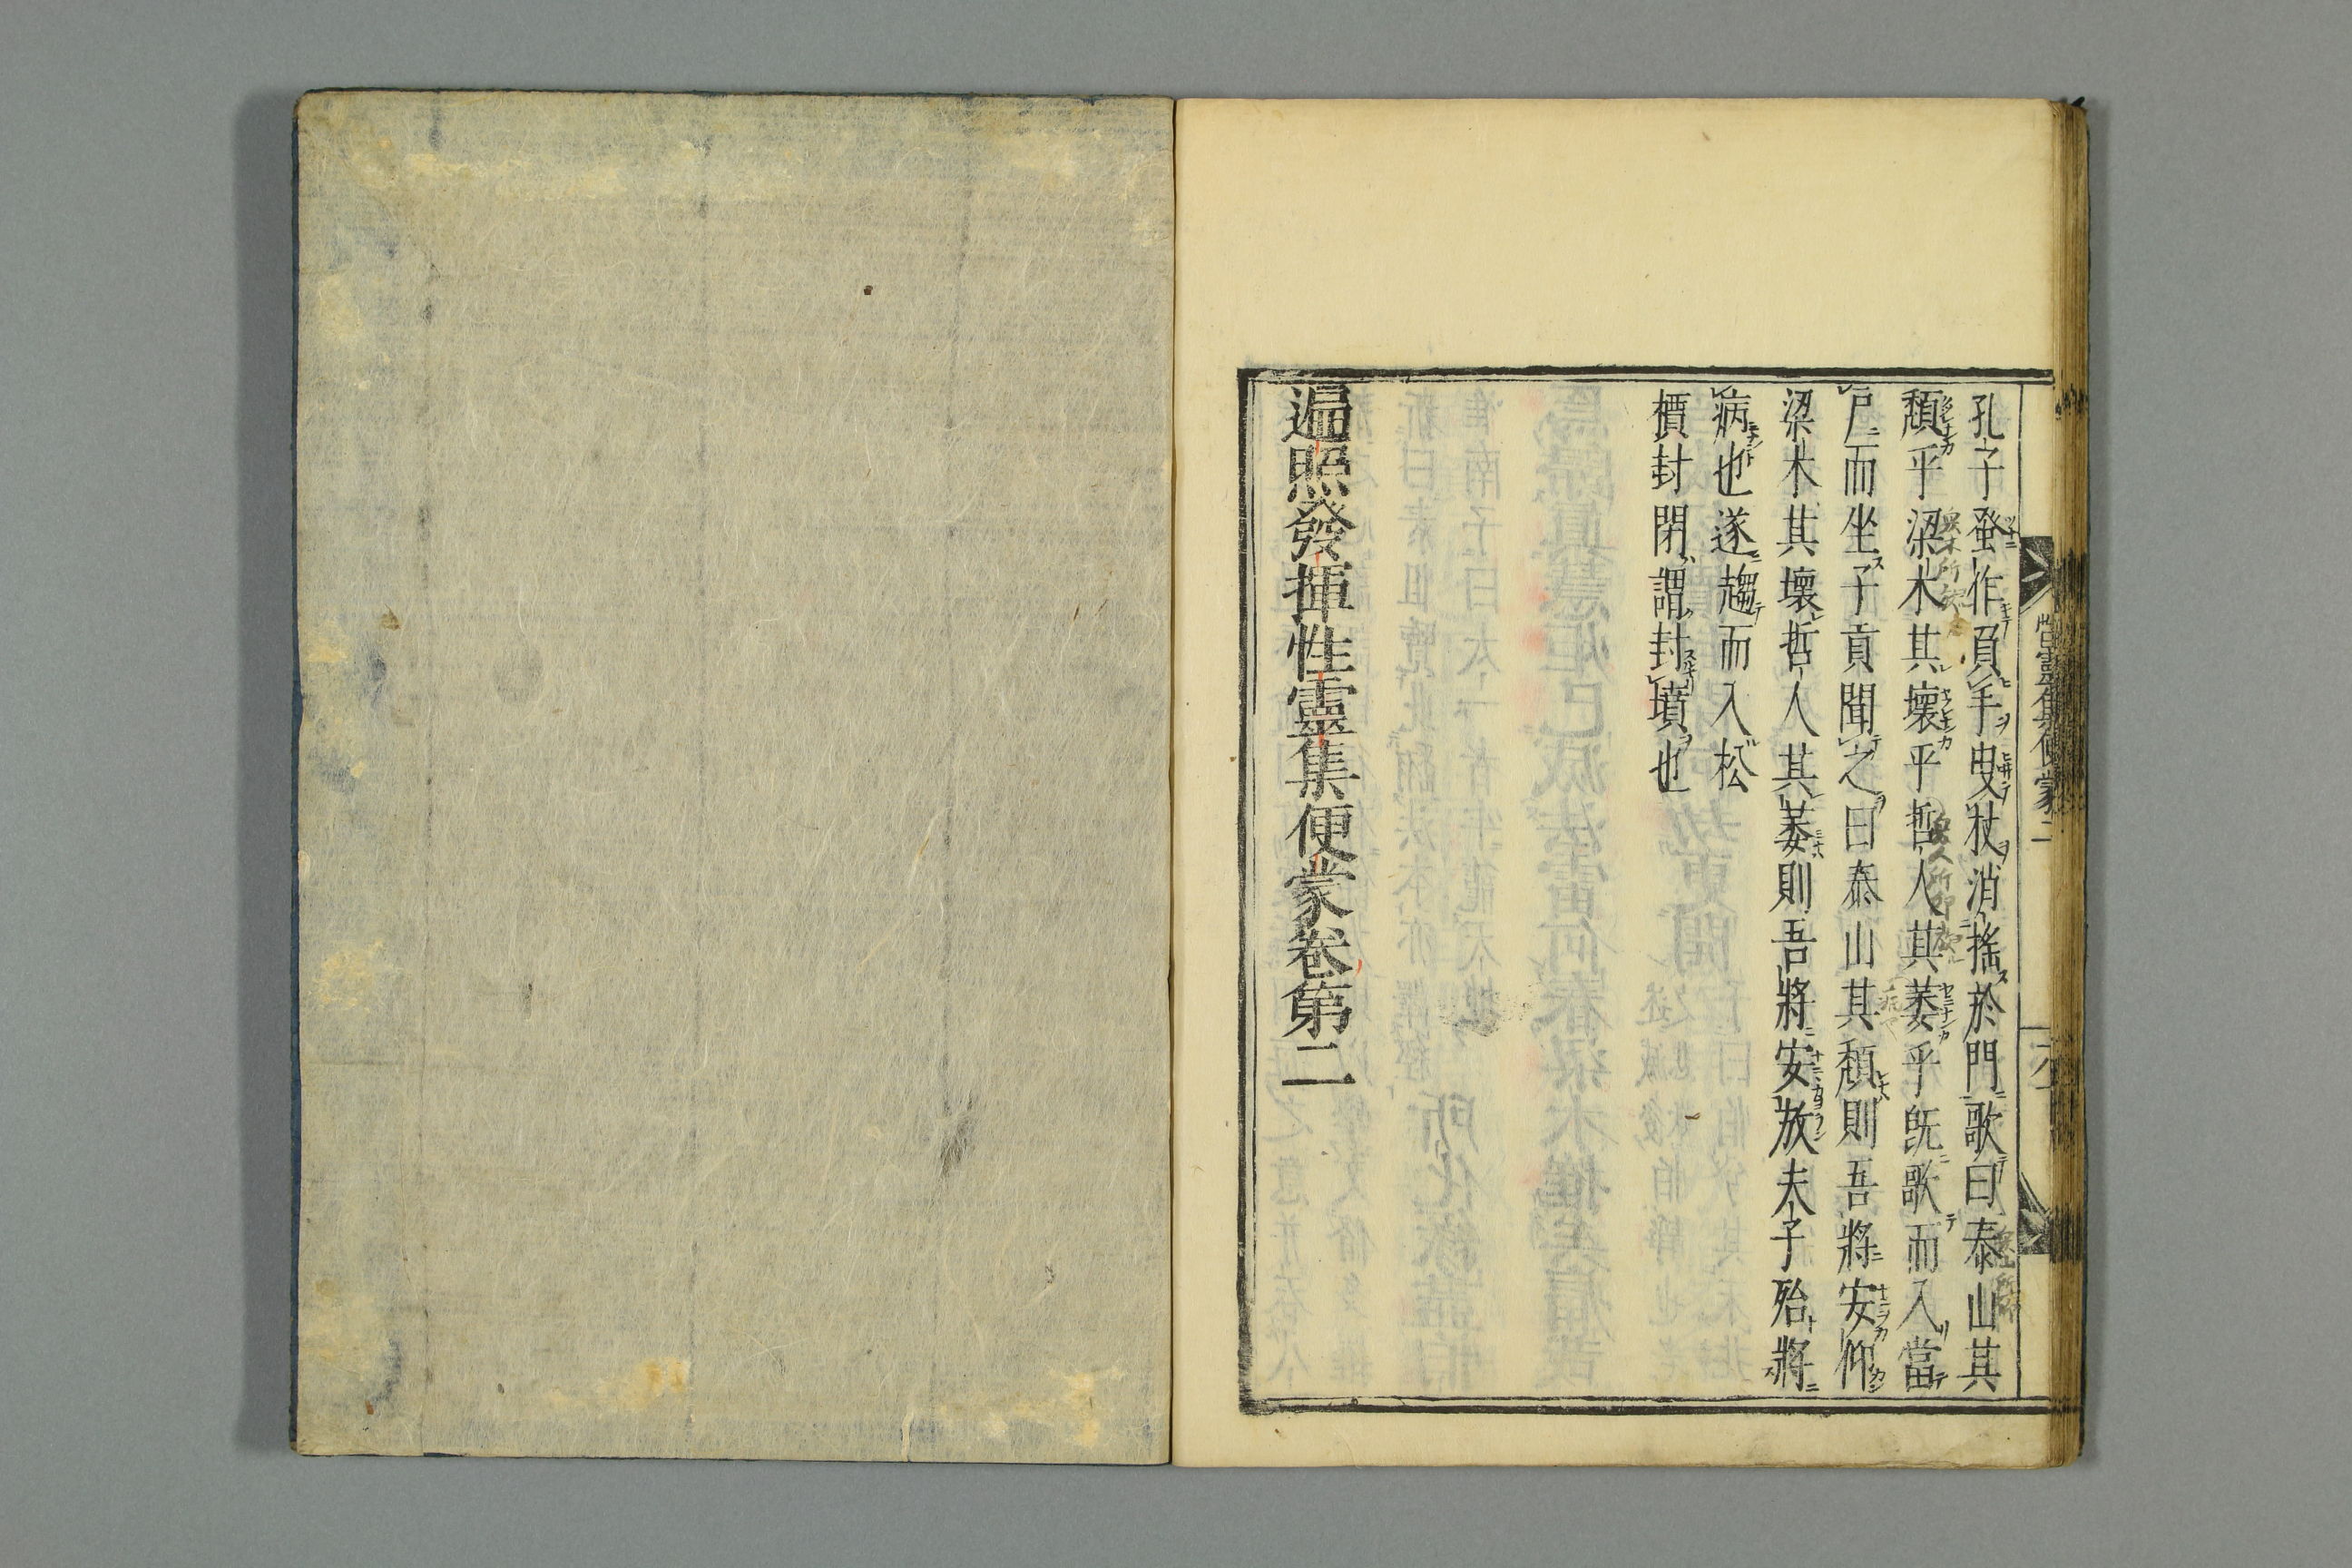 孔子蚤作負手曳杖消搖於門歌曰泰山其
頽乎梁木其壞乎哲人其萎乎既歌而入當
戸而坐子貢聞之曰泰山其頽則吾將安仰
梁木其壞哲人其萎則吾將安放夫子殆將
病也遂趨而入松
檟封閉謂封墳也
遍照發揮性靈集便蒙卷第二
性靈集便蒙二